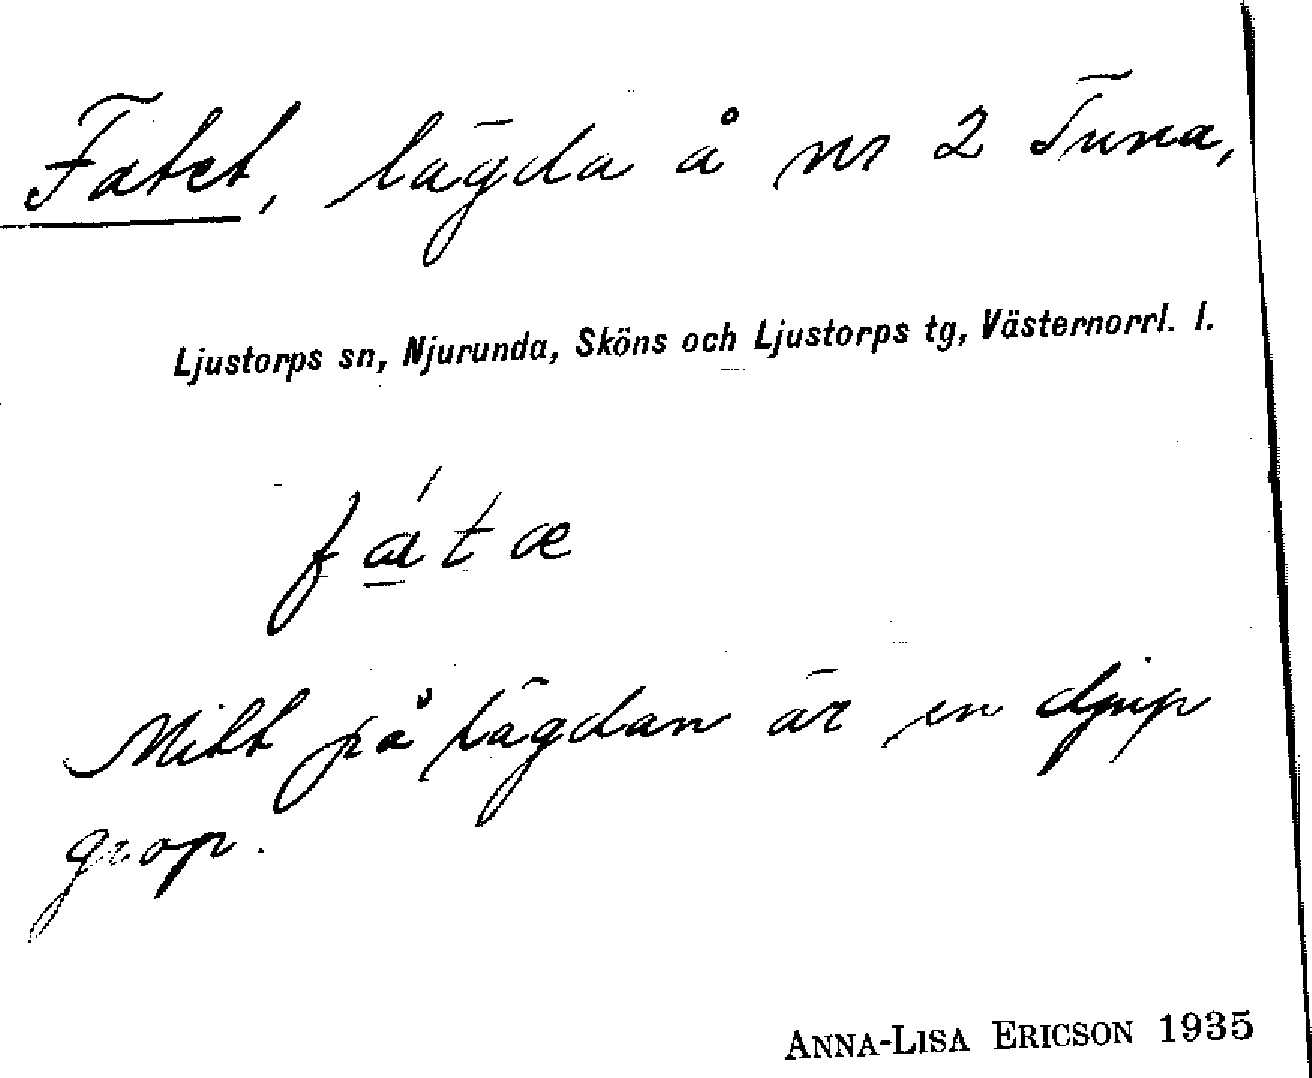 Fatet, lägda å nr 2 Tuna,
Ljustorps sn, Njurunda, Sköns och Ljustorps tg, Västernorrl. l.
fa̱´tæ
Mitt på lägdan är en djup
grop.
ANNA-LISA ERICSON 1935